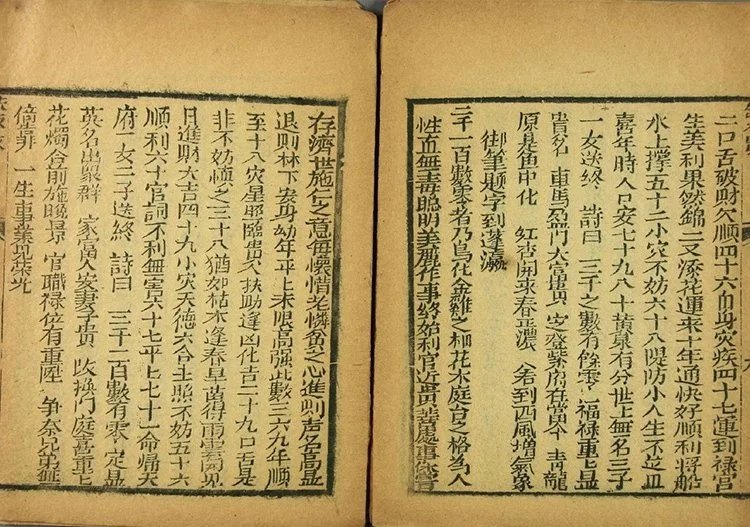 二口舌破財欠順四十六自身灾疾四十七運到祿宮
生美利果然錦上又添花運來十年通快好順利將船
水上撑五十二小灾不妨六十八隄防小人生不足血
喜年時人口安七十九八十黃泉有分世上無名三子
一女送終 詩曰 三千之數有餘零 福祿重重上益
貴名 車馬盈門大富貴 定登紫府在當今 青龍
原是魚中化 紅杏開來春正濃 名到四風增氣象
御筆題字到蓬瀛
三千一百數零者乃烏化金雞之 花木庭台之格為人
性直無毒聰明美麗作事終始利官近貴善處事
存濟世施仁之意每懷惜老憐貧之心進則吉名高益
退則林下安身幼年平上末限高强此數三六九年順
至十八灾星照臨貴人扶助逢凶化吉二十九口舌是
非不妨慎之三十八猶如枯木逢春旱苗得雨雲開見
日進財大吉四十九小灾天德六合上照不妨五十六
順利六十官詞不利無害六十七平上七十一命歸天
府一女二子送終 詩曰 三千二百數有零 定是
英名出眾群 家富人安妻子貴 改換門庭喜重重
花燭台前施晚景 官職祿位有重陞 爭奈兄弟無
一生事業見榮光